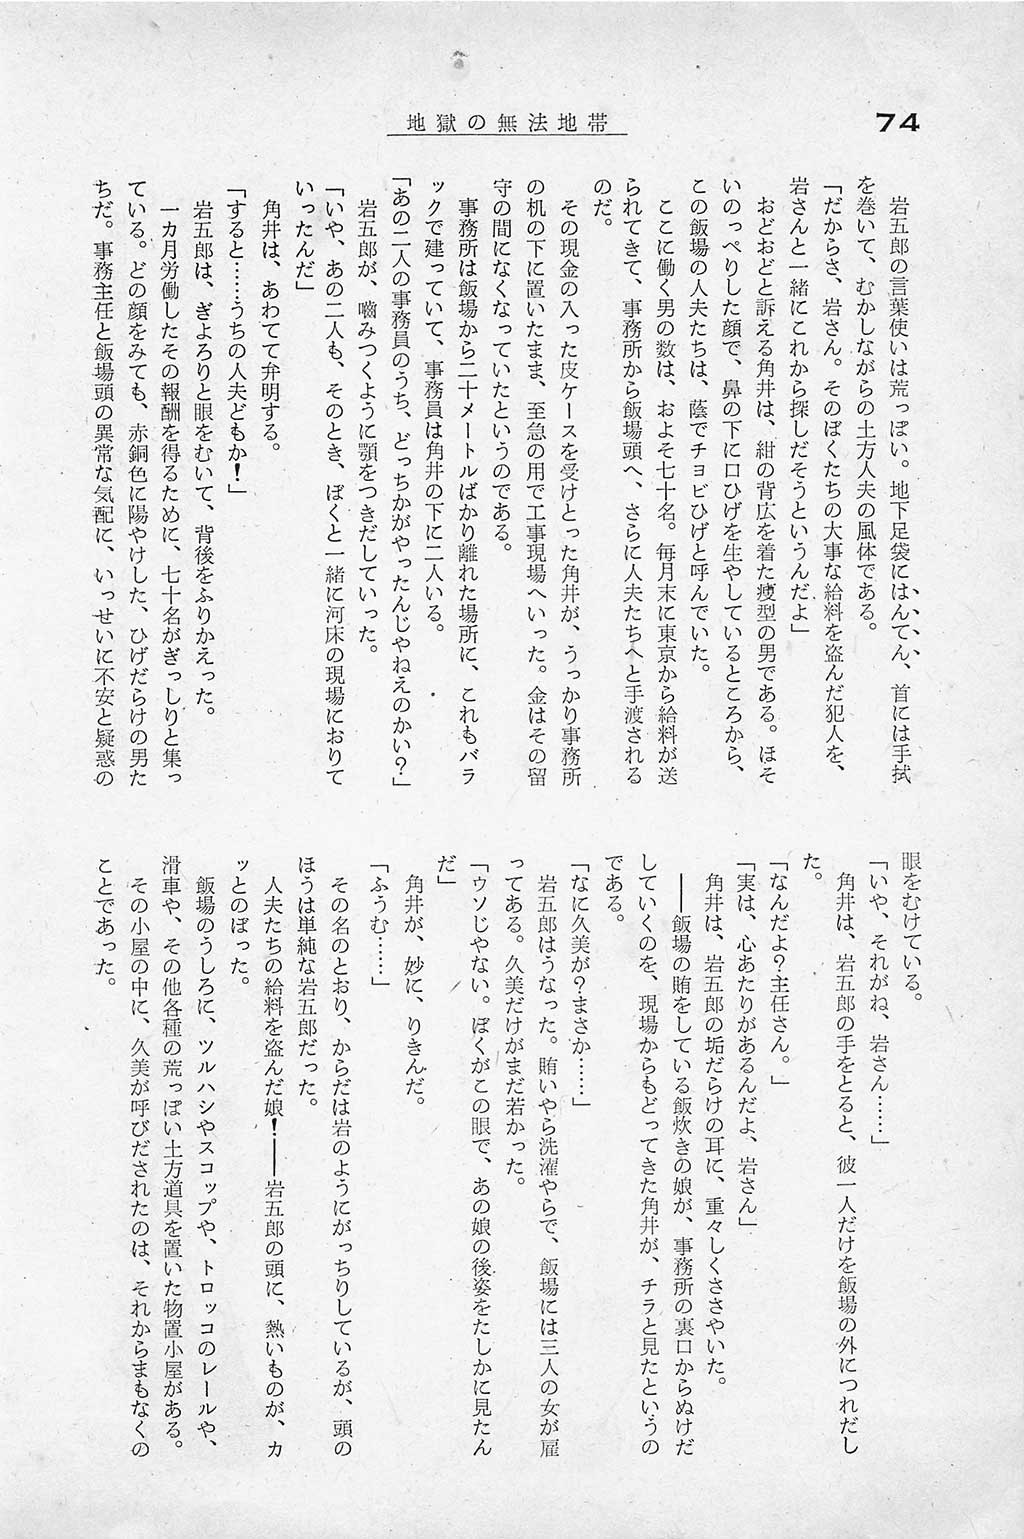 74
地獄の無法地帯
岩五郎の言葉使いは荒っぽい。地下足袋にはんてん、首には手拭
を巻いて、むかしながらの土方人夫の風体である。
「だからさ、岩さん。そのぼくたちの大事な給料を盗んだ犯人を、
岩さんと一緒にこれから探しだそうというんだよ」
おどおどと訴える角井は、紺の背広を着た痩型の男である。ほそ
いのっぺりした顔で、鼻の下に口ひげを生やしているところから、
この飯場の人夫たちは、蔭でチョビひげと呼んでいた。
ここに働く男の数は、およそ七十名。毎月末に東京から給料が送
られてきて、事務所から飯場頭へ、さらに人夫たちへと手渡される
のだ。
その現金の入った皮ケースを受けとった角井が、うっかり事務所
の机の下に置いたまま、至急の用で工事現場へいった。金はその留
守の間になくなっていたというのである。
事務所は飯場から二十メートルばかり離れた場所に、これもバラ
ックで建っていて、事務員は角井の下に二人いる。
「あの二人の事務員のうち、どっちかがやったんじゃねえのかい？」
岩五郎が、嚙みつくように顎をつきだしていった。
「いや、あの二人も、そのとき、ぼくと一緒に河床の現場におりて
いったんだ」
角井は、あわてて弁明する。
「すると……うちの人夫どもか！」
岩五郎は、ぎよろりと眼をむいて、背後をふりかえった。
一カ月労働したその報酬を得るために、七十名がぎっしりと集っ
ている。どの顔をみても、赤銅色に陽やけした、ひげだらけの男た
ちだ。事務主任と飯場頭の異常な気配に、いっせいに不安と疑惑の
眼をむけている。
「いや、それがね、岩さん……」
角井は、岩五郎の手をとると、彼一人だけを飯場の外につれだし
た。
「なんだよ？主任さん。」
「実は、心あたりがあるんだよ、岩さん」
角井は、岩五郎の垢だらけの耳に、重々しくささやいた。
――飯場の賄をしている飯炊きの娘が、事務所の裏口からぬけだ
していくのを、現場からもどってきた角井が、チラと見たというの
である。
「なに久美が？まさか……」
岩五郎はうなった。賄いやら洗濯やらで、飯場には三人の女が雇
ってある。久美だけがまだ若かった。
「ゥソじゃない。ぼくがこの眼で、あの娘の後姿をたしかに見たん
だ」
角井が、妙に、りきんだ。
「ふうむ……」
その名のとおり、からだは岩のようにがっちりしているが、頭の
ほうは単純な岩五郎だった。
人夫たちの給料を盗んだ娘！――岩五郎の頭に、熱いものが、カ
ッとのぼった。
飯場のうしろに、ツルハシやスコップや、トロッコのレールや、
滑車や、その他各種の荒っぽい土方道具を置いた物置小屋がある。
その小屋の中に、久美が呼びだされたのは、それからまもなくの
ことであった。